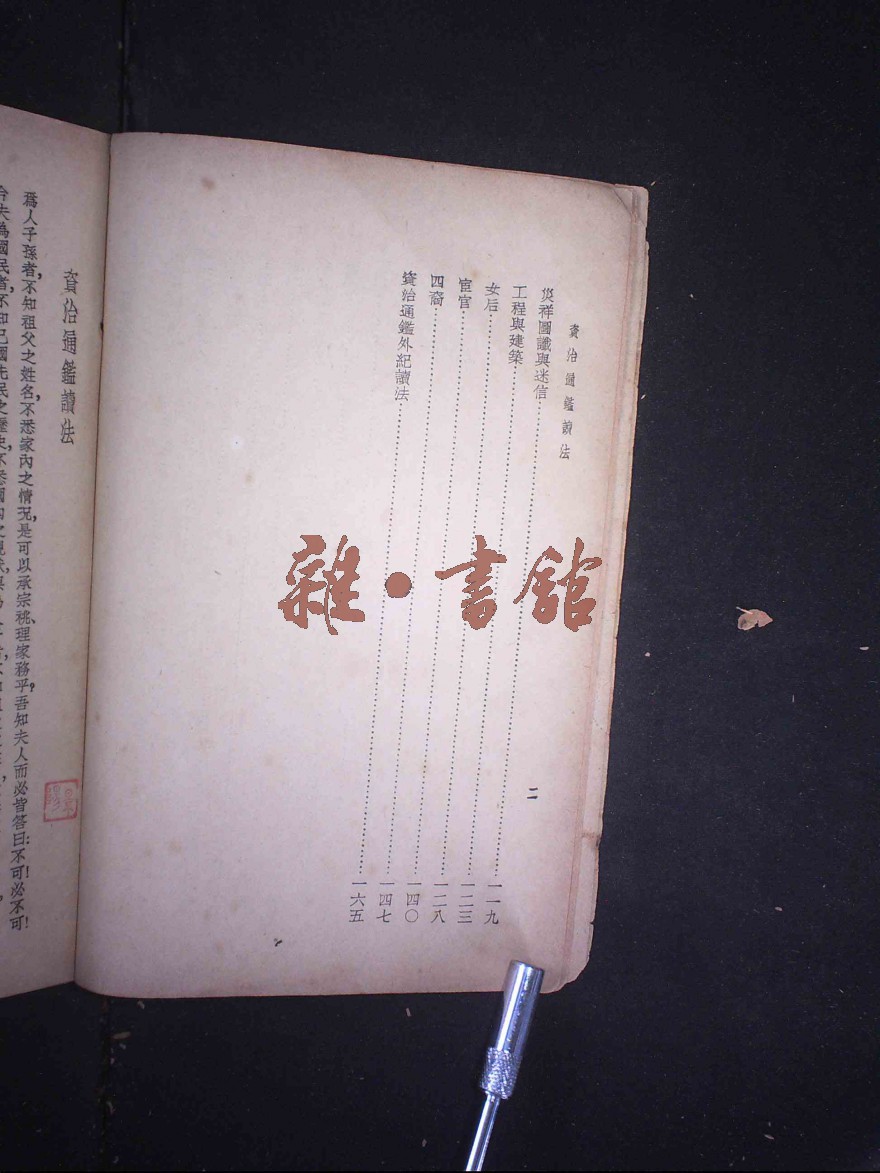 資治通鑑讀法
二
災祥圖讖與迷信……一一九
工程與建築……一二三
女后……一二八
宦官……一四〇
四裔……一四七
資治通鑑外紀讀法……一六五
雜•書館
資治通鑑讀法
爲人子孫者,不知祖父之姓名,不悉家內之情况,是可以承宗祧,理家務乎?吾知夫人而必皆答曰:不可!必不可!
今夫爲國民者,不知己國先民之歷史,不悉國內之現狀,